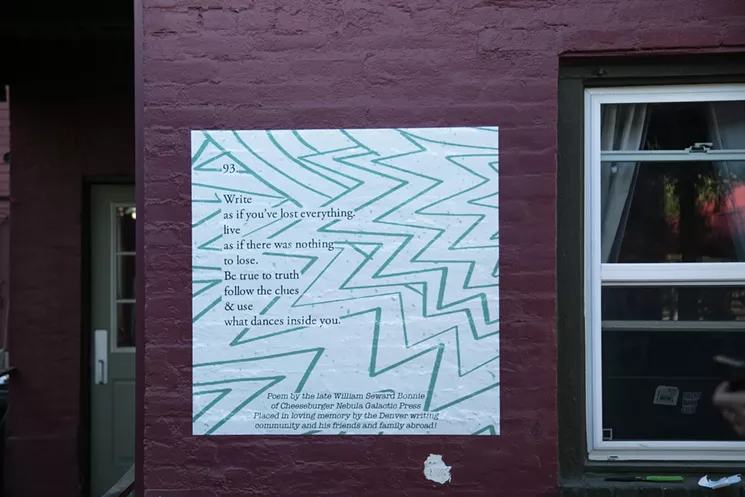 93.
Write
as if you've lost everything.
live
as if there was nothing
to lose.
Be true to truth
follow the clues
& use
what dances inside you.
Poem by the late William Seward Bonnie
of Cheeseburger Nebula Galactic Press
Placed in loving memory by the Denver writing
community and his friends and family abroad!